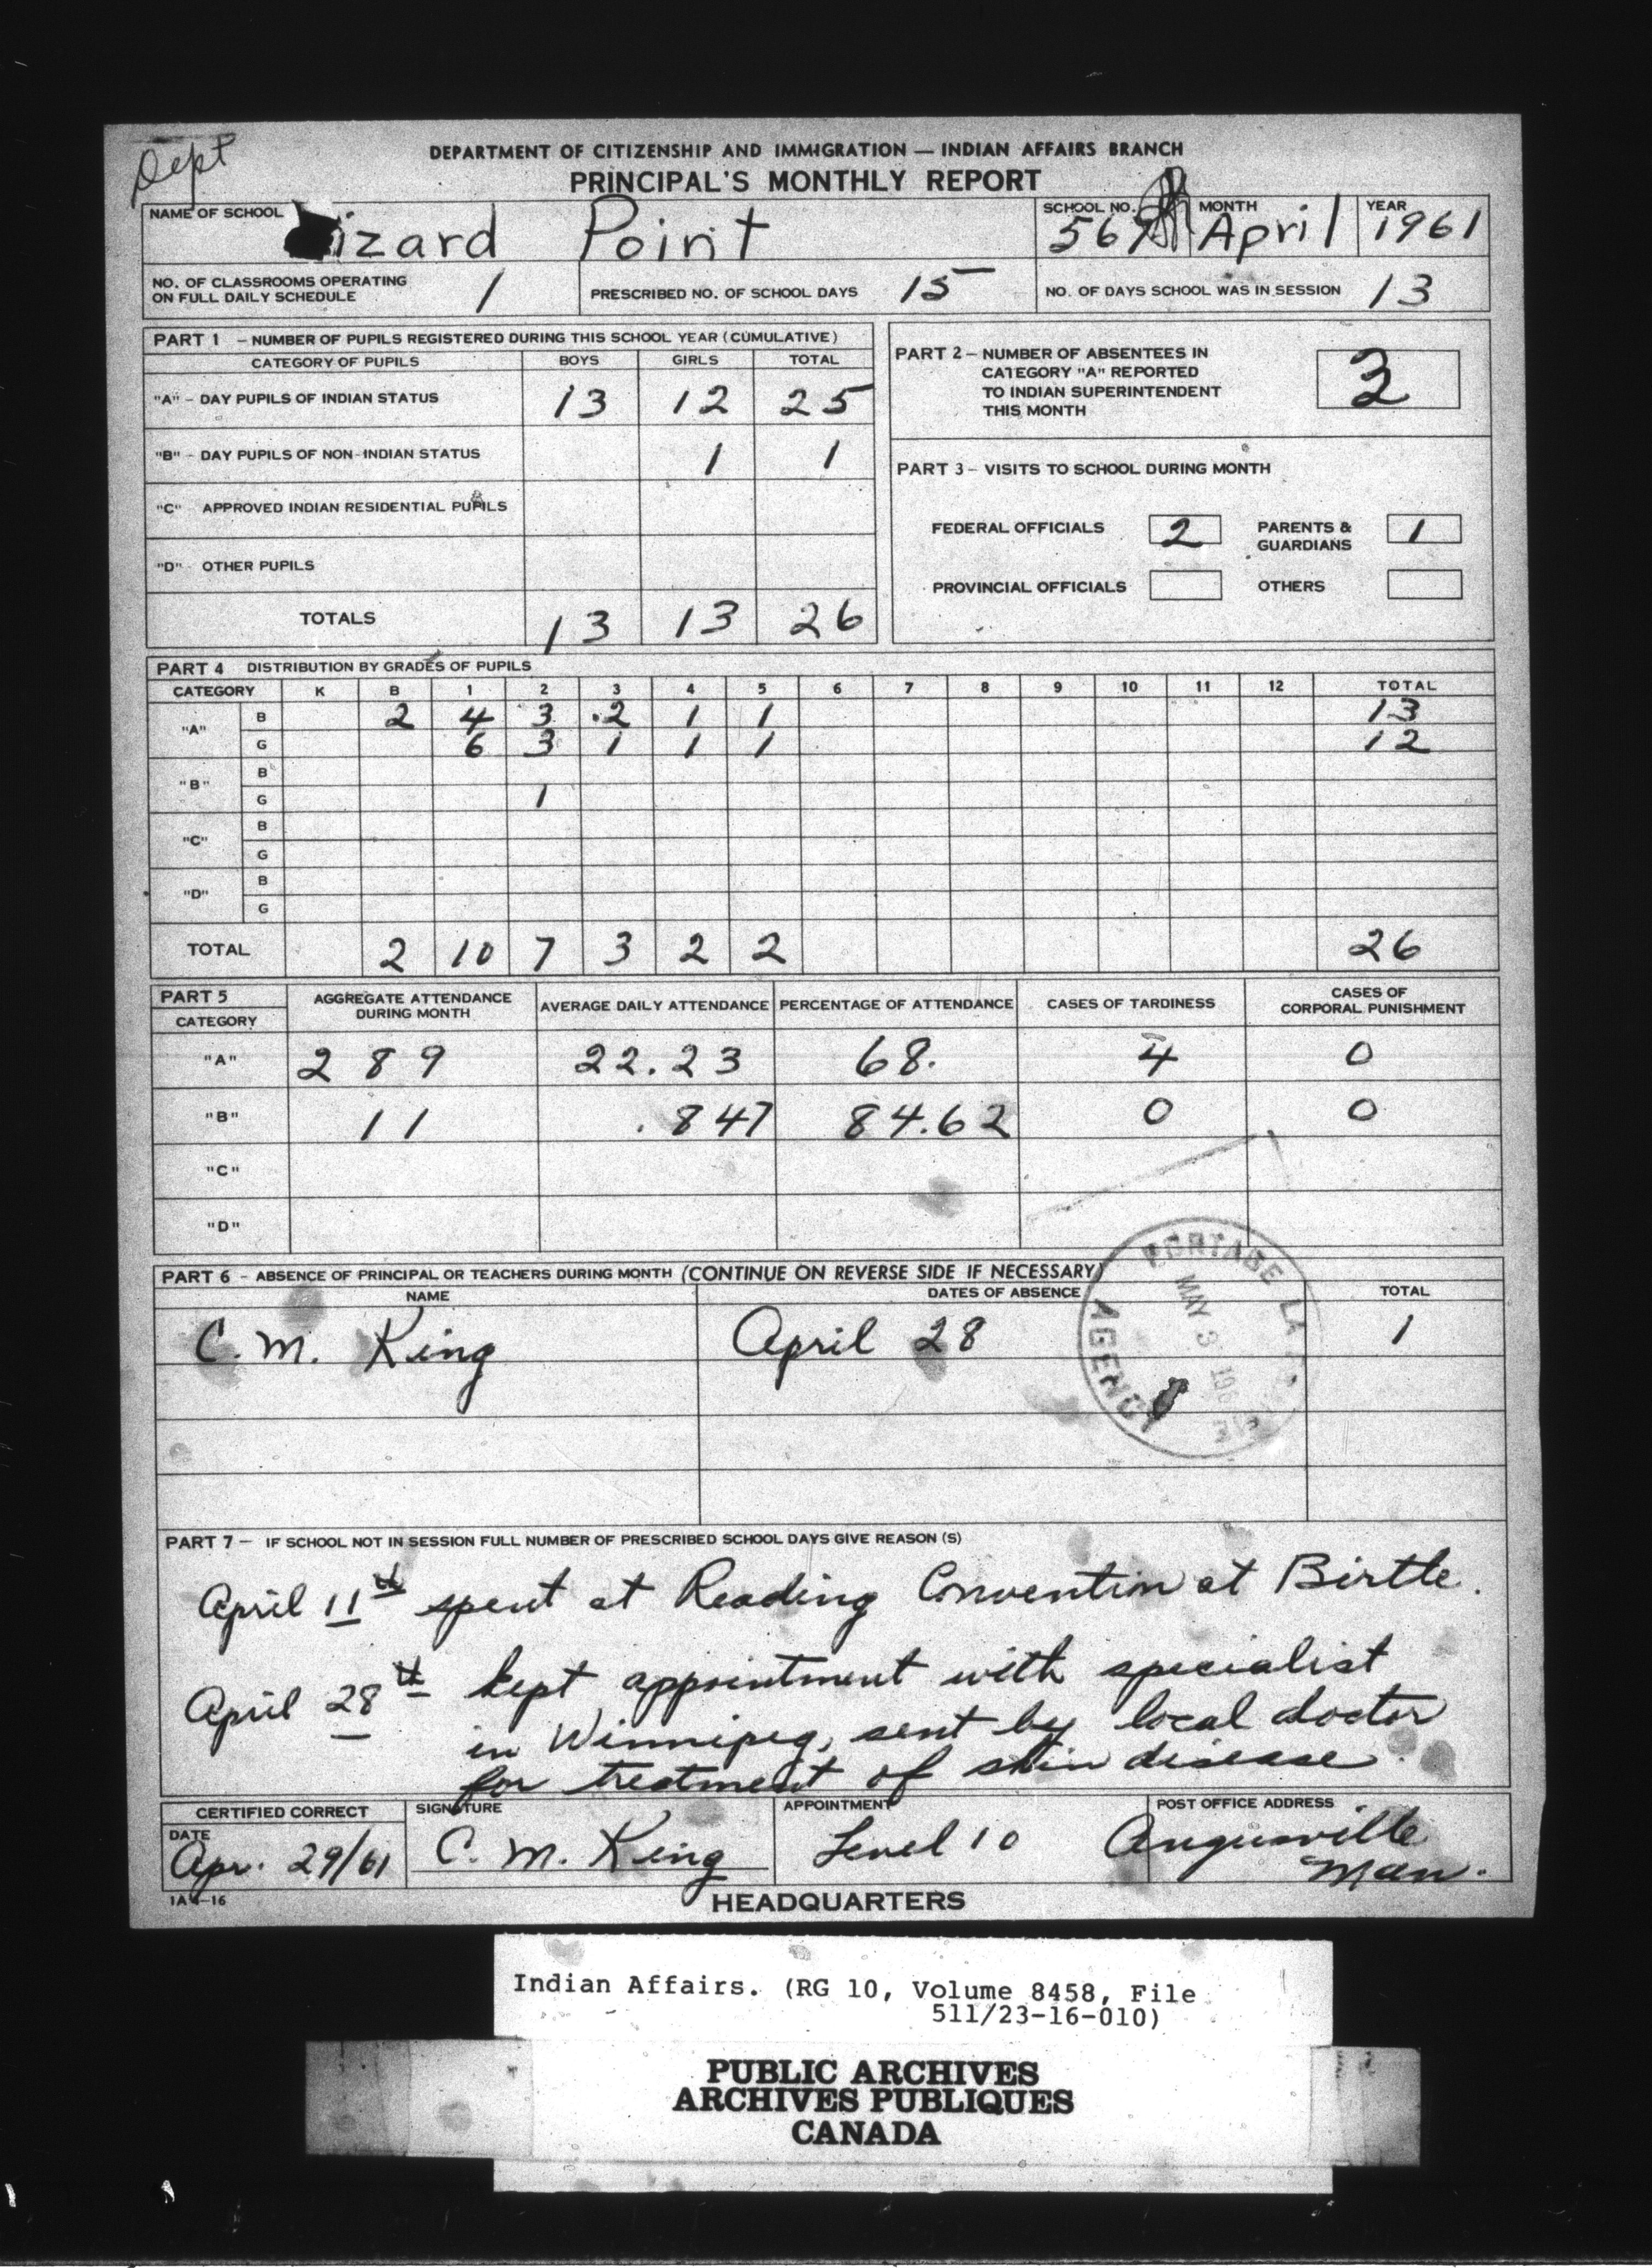 Dept
DEPARTMENT OF CITIZENSHIP AND IMMIGRATION — INDIAN AFFAIRS BRANCH
PRINCIPAL'S MONTHLY REPORT
NAME OF SCHOOL izard Point
SCHOOL NO. 567
MONTH April
YEAR 1961
NO. OF CLASSROOMS OPERATING
ON FULL DAILY SCHEDULE 1
PRESCRIBED NO. OF SCHOOL DAYS 15
NO. OF DAYS SCHOOL WAS IN SESSION 13
PART 1 – NUMBER OF PUPILS REGISTERED DURING THIS SCHOOL YEAR (CUMULATIVE)
CATEGORY OF PUPILS BOYS GIRLS TOTAL
"A" – DAY PUPILS OF INDIAN STATUS 13 12 25
"B" – DAY PUPILS OF NON-INDIAN STATUS 1 1
"C" APPROVED INDIAN RESIDENTIAL PUPILS
"D" OTHER PUPILS
TOTALS 13 13 26
PART 2 – NUMBER OF ABSENTEES IN
CATEGORY "A" REPORTED
TO INDIAN SUPERINTENDENT
THIS MONTH
PART 3 – VISITS TO SCHOOL DURING MONTH
FEDERAL OFFICIALS 2 PARENTS &
GUARDIANS 1
PROVINCIAL OFFICIALS OTHERS
PART 4 DISTRIBUTION BY GRADES OF PUPILS
CATEGORY K B 1 2 3 4 5 6 7 8 9 10 11 12 TOTAL
"A" B 2 4 3 2 1 1 13
G 6 3 1 1 1 12
"B" B
G 1
"C" B
G
"D" B
G
TOTAL 2 10 7 3 2 2 26
PART 5
CATEGORY
AGGREGATE ATTENDANCE
DURING MONTH
AVERAGE DAILY ATTENDANCE
PERCENTAGE OF ATTENDANCE
CASES OF TARDINESS
CASES OF
CORPORAL PUNISHMENT
"A" 289 22.23 68. 4 0
"B" 11 .847 84.62 0 0
"C"
"D"
PART 6 – ABSENCE OF PRINCIPAL OR TEACHERS DURING MONTH (CONTINUE ON REVERSE SIDE IF NECESSARY)
NAME DATES OF ABSENCE TOTAL
C. M. King April 28 1
PORTAGE LA
AGENCY
MAY 3
PART 7 – IF SCHOOL NOT IN SESSION FULL NUMBER OF PRESCRIBED SCHOOL DAYS GIVE REASON (S)
April 11th spent at Reading Convention at Birtle.
April 28th kept appointment with specialist
in Winnipeg, sent by local doctor
for treatment of skin disease.
CERTIFIED CORRECT
DATE Apr. 29/61
SIGNATURE C. M. King
APPOINTMENT Level 10
POST OFFICE ADDRESS Angusville
Man.
IA 4-16
HEADQUARTERS
Indian Affairs. (RG 10, Volume 8458, File
511/23-16-010)
PUBLIC ARCHIVES
ARCHIVES PUBLIQUES
CANADA